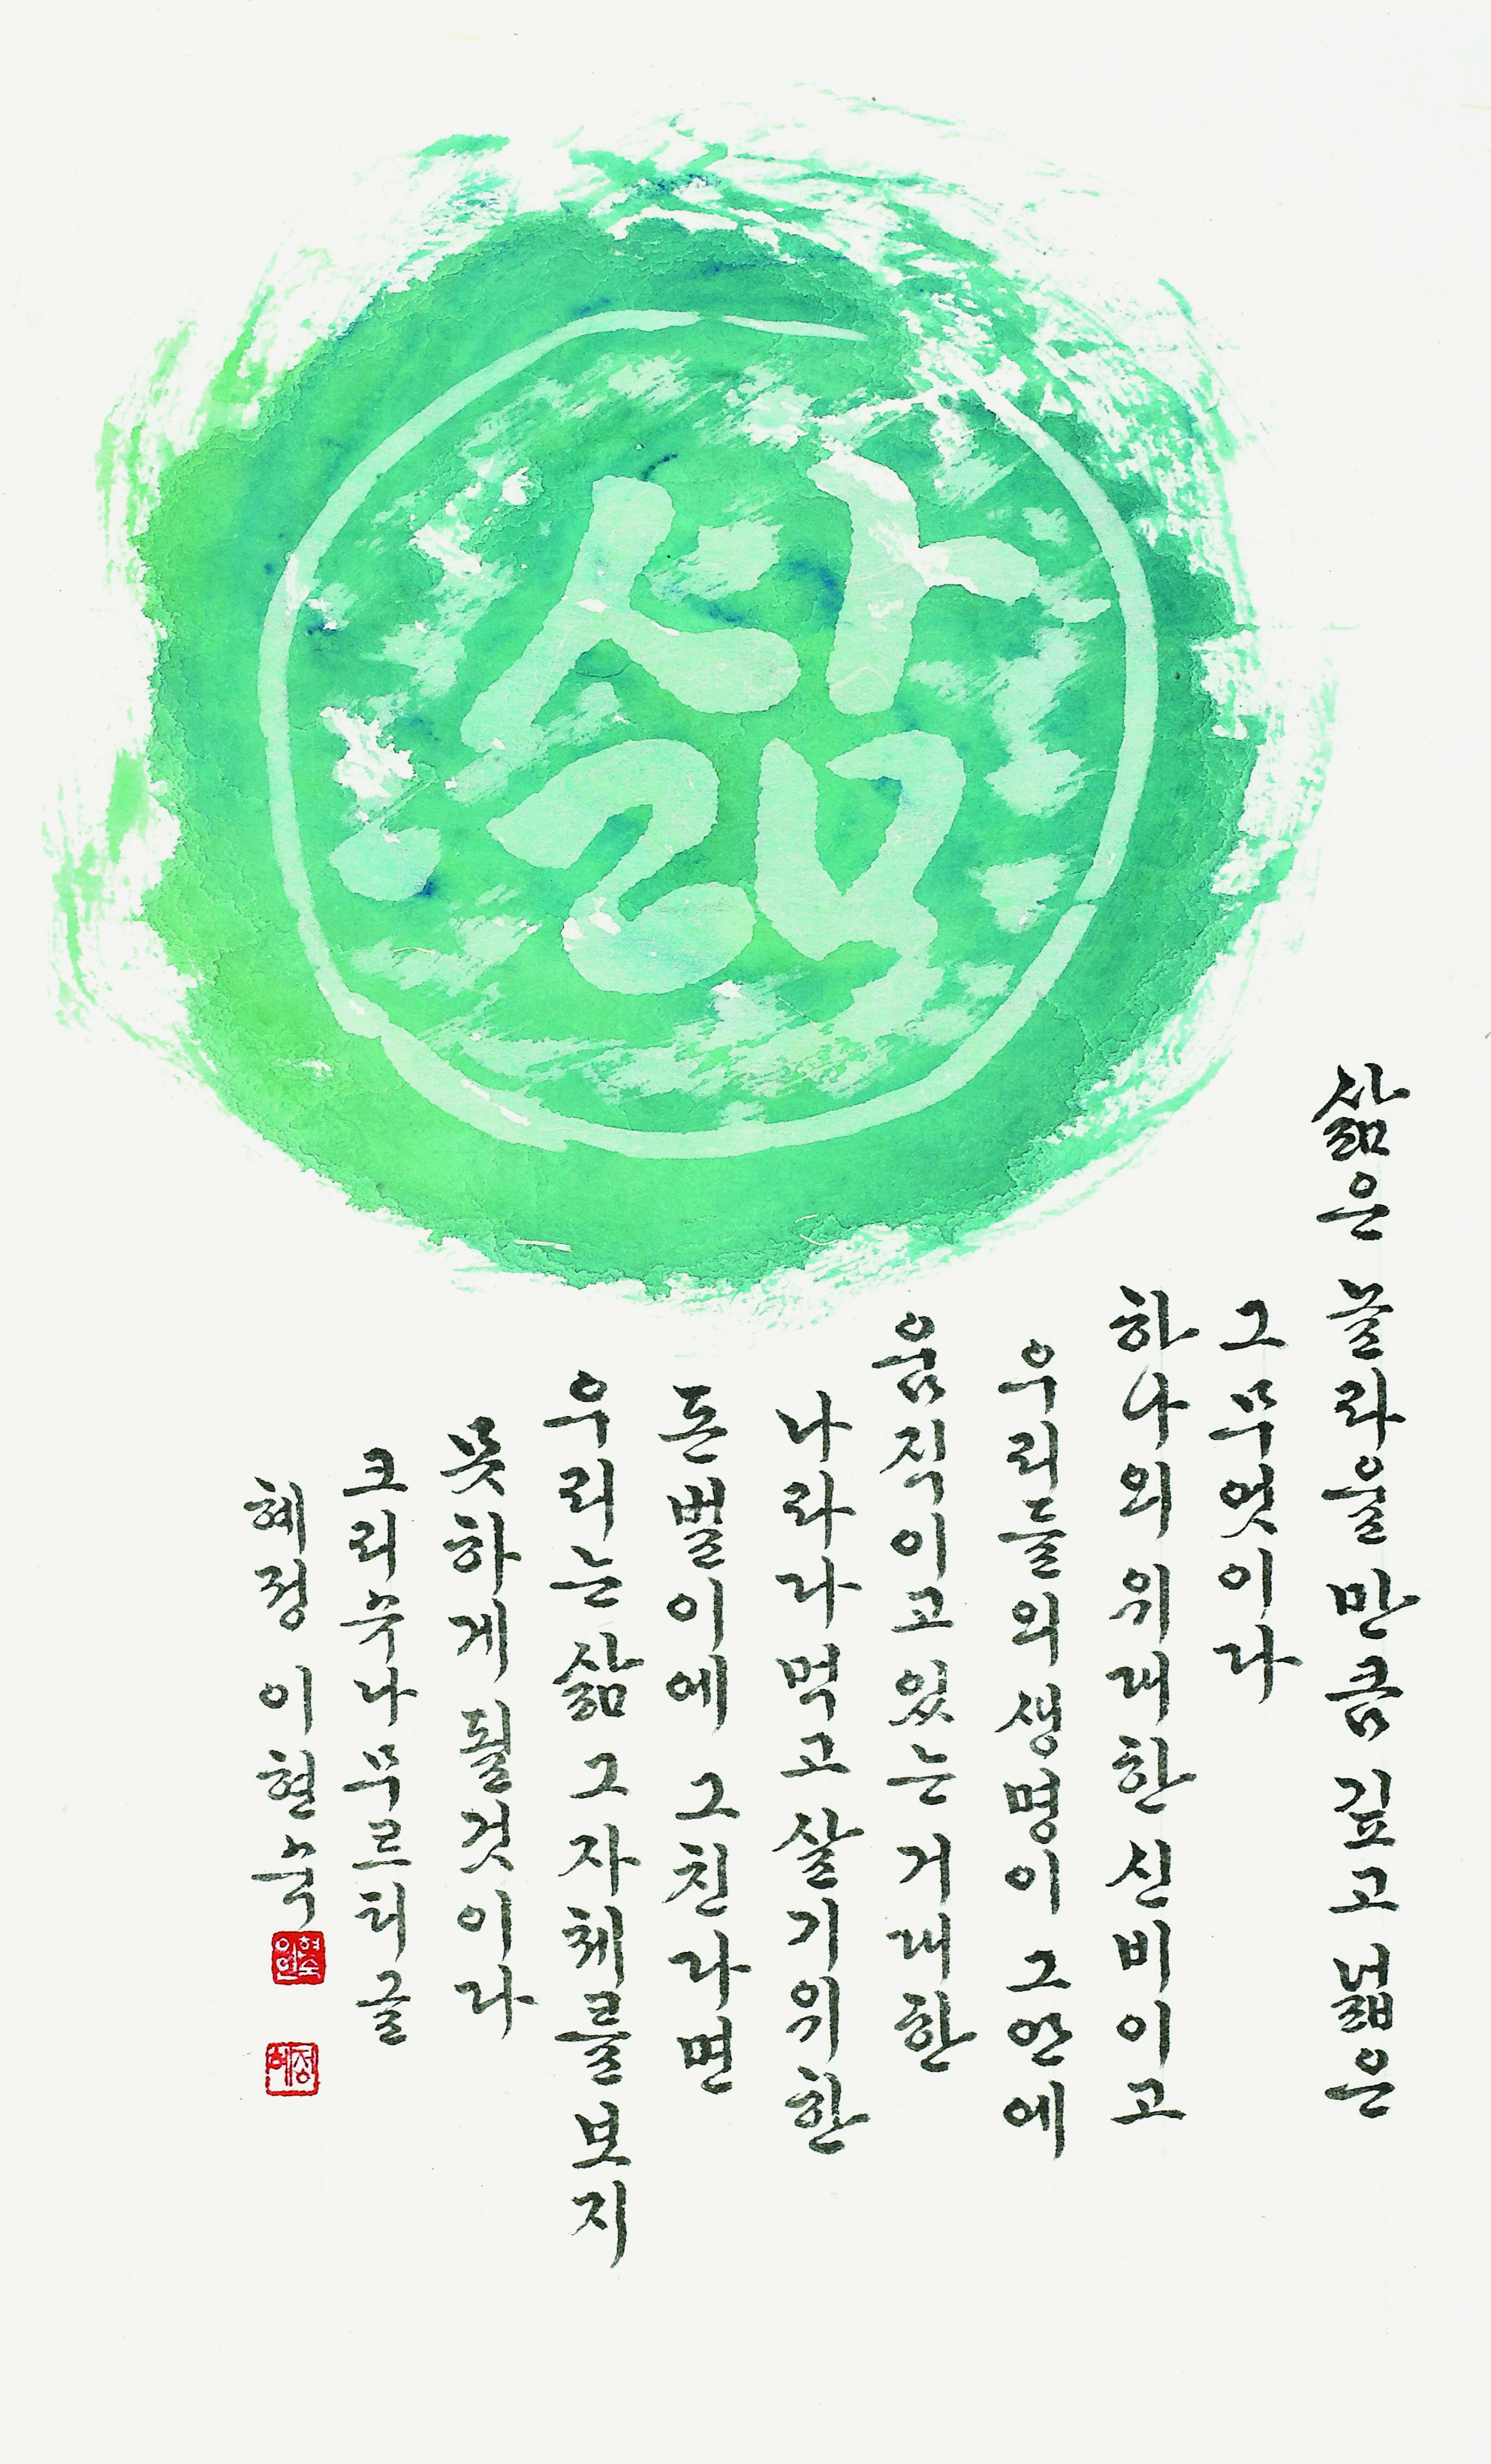 삶
삶은 놀라울 만큼 깊고 넓은
그 무엇이다
하나의 위대한 신비이고
우리들의 생명이 그 안에
움직이고 있는 거대한
나라다 먹고 살기 위한
돈벌이에 그친다면
우리는 삶 그 자체를 보지
못하게 될 것이다
크리슈나무르티 글
혜정 이현숙
이현숙인
혜정